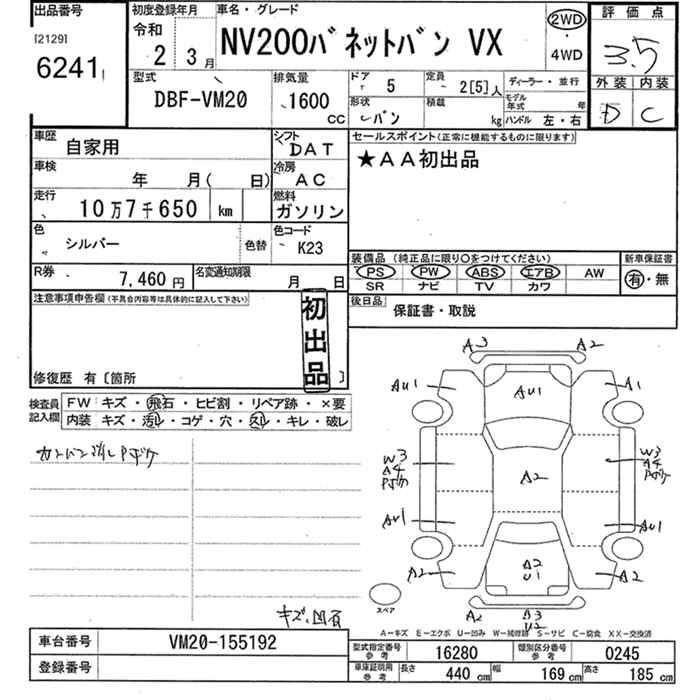 出品番号 初度登録年月 車名・グレード 評価点
[2129] 令和 NV200バネットバン VX 2WD
6241 2 3月 ・ 3.5
4WD
型式 排気量 ドア 5 定員 2[5]人 ディーラー・並行 外装 内装
DBF-VM20 1600 cc 形状 バン 積載 kg モデル年式 年 D C
ハンドル 左・右
車歴 自家用 シフト DAT セールスポイント(正常に機能するものに限ります)
車検 年 月( 日) 冷房 AC ★AA初出品
走行 10万7千650 km 燃料 ガソリン
色 シルバー 色替 色コード K23
装備品 (純正品に限り○をつけてください) 新車保証書
R券 7,460円 名変通知期限 月 日 PS PW ABS エアB AW 有・無
SR ナビ TV カワ
注意事項申告欄(不具合内容等は具体的に記入して下さい) 初出品 後日品 保証書・取説
修復歴 有〔箇所 〕
検査員記入欄 FW: キズ・飛石・ヒビ割・リペア跡・×要
内装 キズ・汚レ・コゲ・穴・スレ・キレ・破レ
カンバン消しPボケ
A3 A2
AU1 AU1 A1
W3 W3
A4 A4
Pボケ A2 Pボケ
AU1 AU1
A2 A2 A2
U1
スペア
A2 B3
U2
キズ、凹有
A-キズ E-エクボ U-凹み W-補修跡 S-サビ C-腐食 XX-交換済
車台番号 VM20-155192 型式指定番号 参考 16280 類別区分番号 参考 0245
登録番号 車庫証明用 参考 長さ 440 cm 幅 169 cm 高さ 185 cm